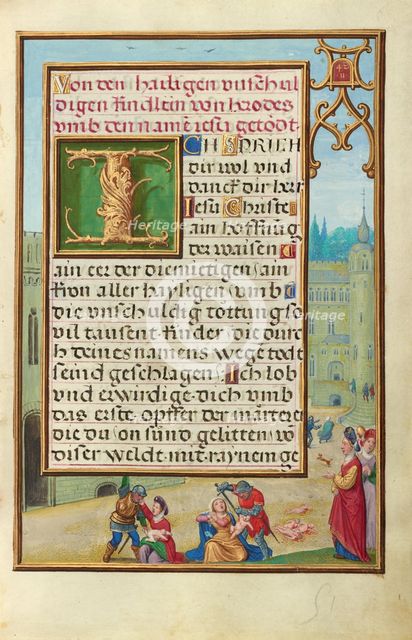 Von den hailigen unschul
digen kindlein von hrodes
umb den name iesu getodt·
ICH SPRICH
dir wol und
danck dir herr
Iesu Christe
ain hoffnung
der waisen
ain eer der diemietigen / ain
kron aller hayligen / umb
die unschuldig tottung so
vil tausent kinder die durc
h deines namens wege todt
seind geschlagen / Ich lob
und erwirdige dich umb
das erste opffer der märterer
die du / on sünd gelitten / vō
diser weldt mit raynem ge
Heritage
Heritage
51